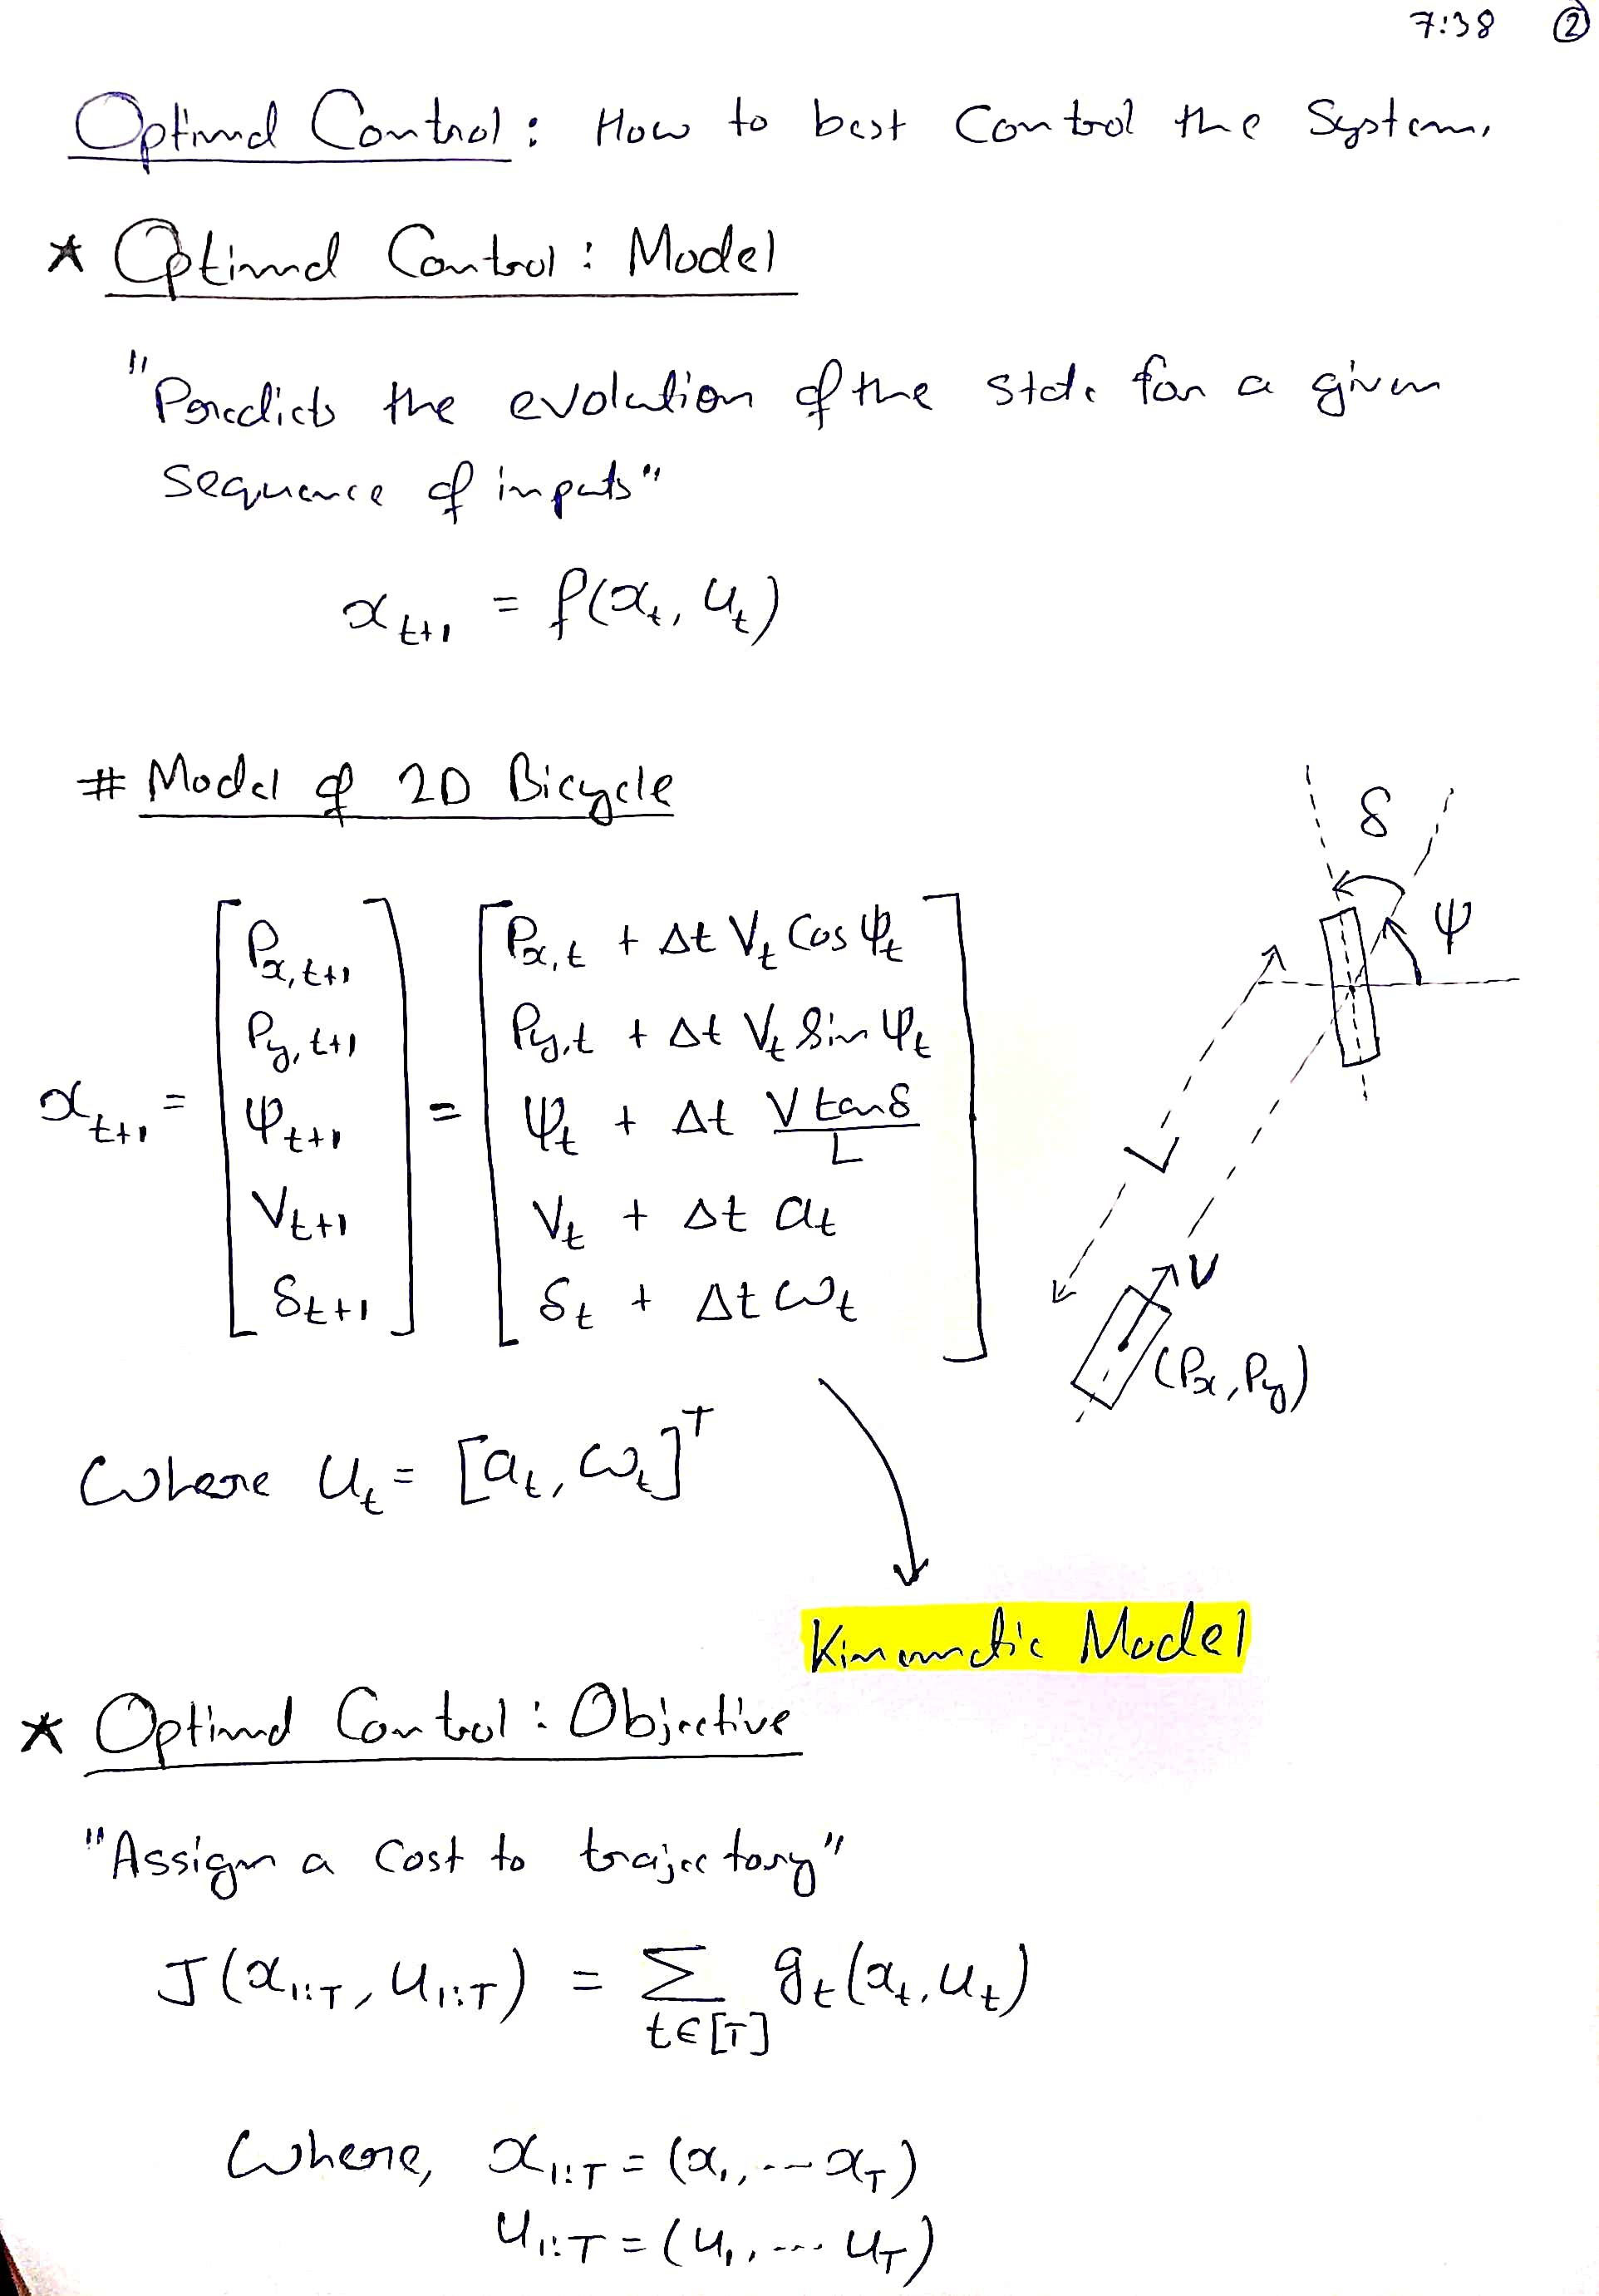 7:38 ②
Optimal Control: How to best Control the System.
* Optimal Control: Model
"Predicts the evolution of the state for a given
sequence of inputs"
x_{t+1} = f(x_t, u_t)
# Model of 2D Bicycle
x_{t+1} = [P_{x,t+1} P_{y,t+1} ψ_{t+1} V_{t+1} δ_{t+1}] =
P_{x,t} + Δt V_t Cos ψ_t
P_{y,t} + Δt V_t Sin ψ_t
ψ_t + Δt V tanδ / L
V_t + Δt a_t
δ_t + Δt ω_t
δ
ψ
L
V
(P_x, P_y)
Where u_t = [a_t, ω_t]^T
Kinematic Model
* Optimal Control: Objective
"Assign a Cost to trajectory"
J(x_{1:T}, u_{1:T}) = Σ_{t∈[T]} g_t(x_t, u_t)
Where, x_{1:T} = (x_1, --- x_T)
u_{1:T} = (u_1, --- u_T)